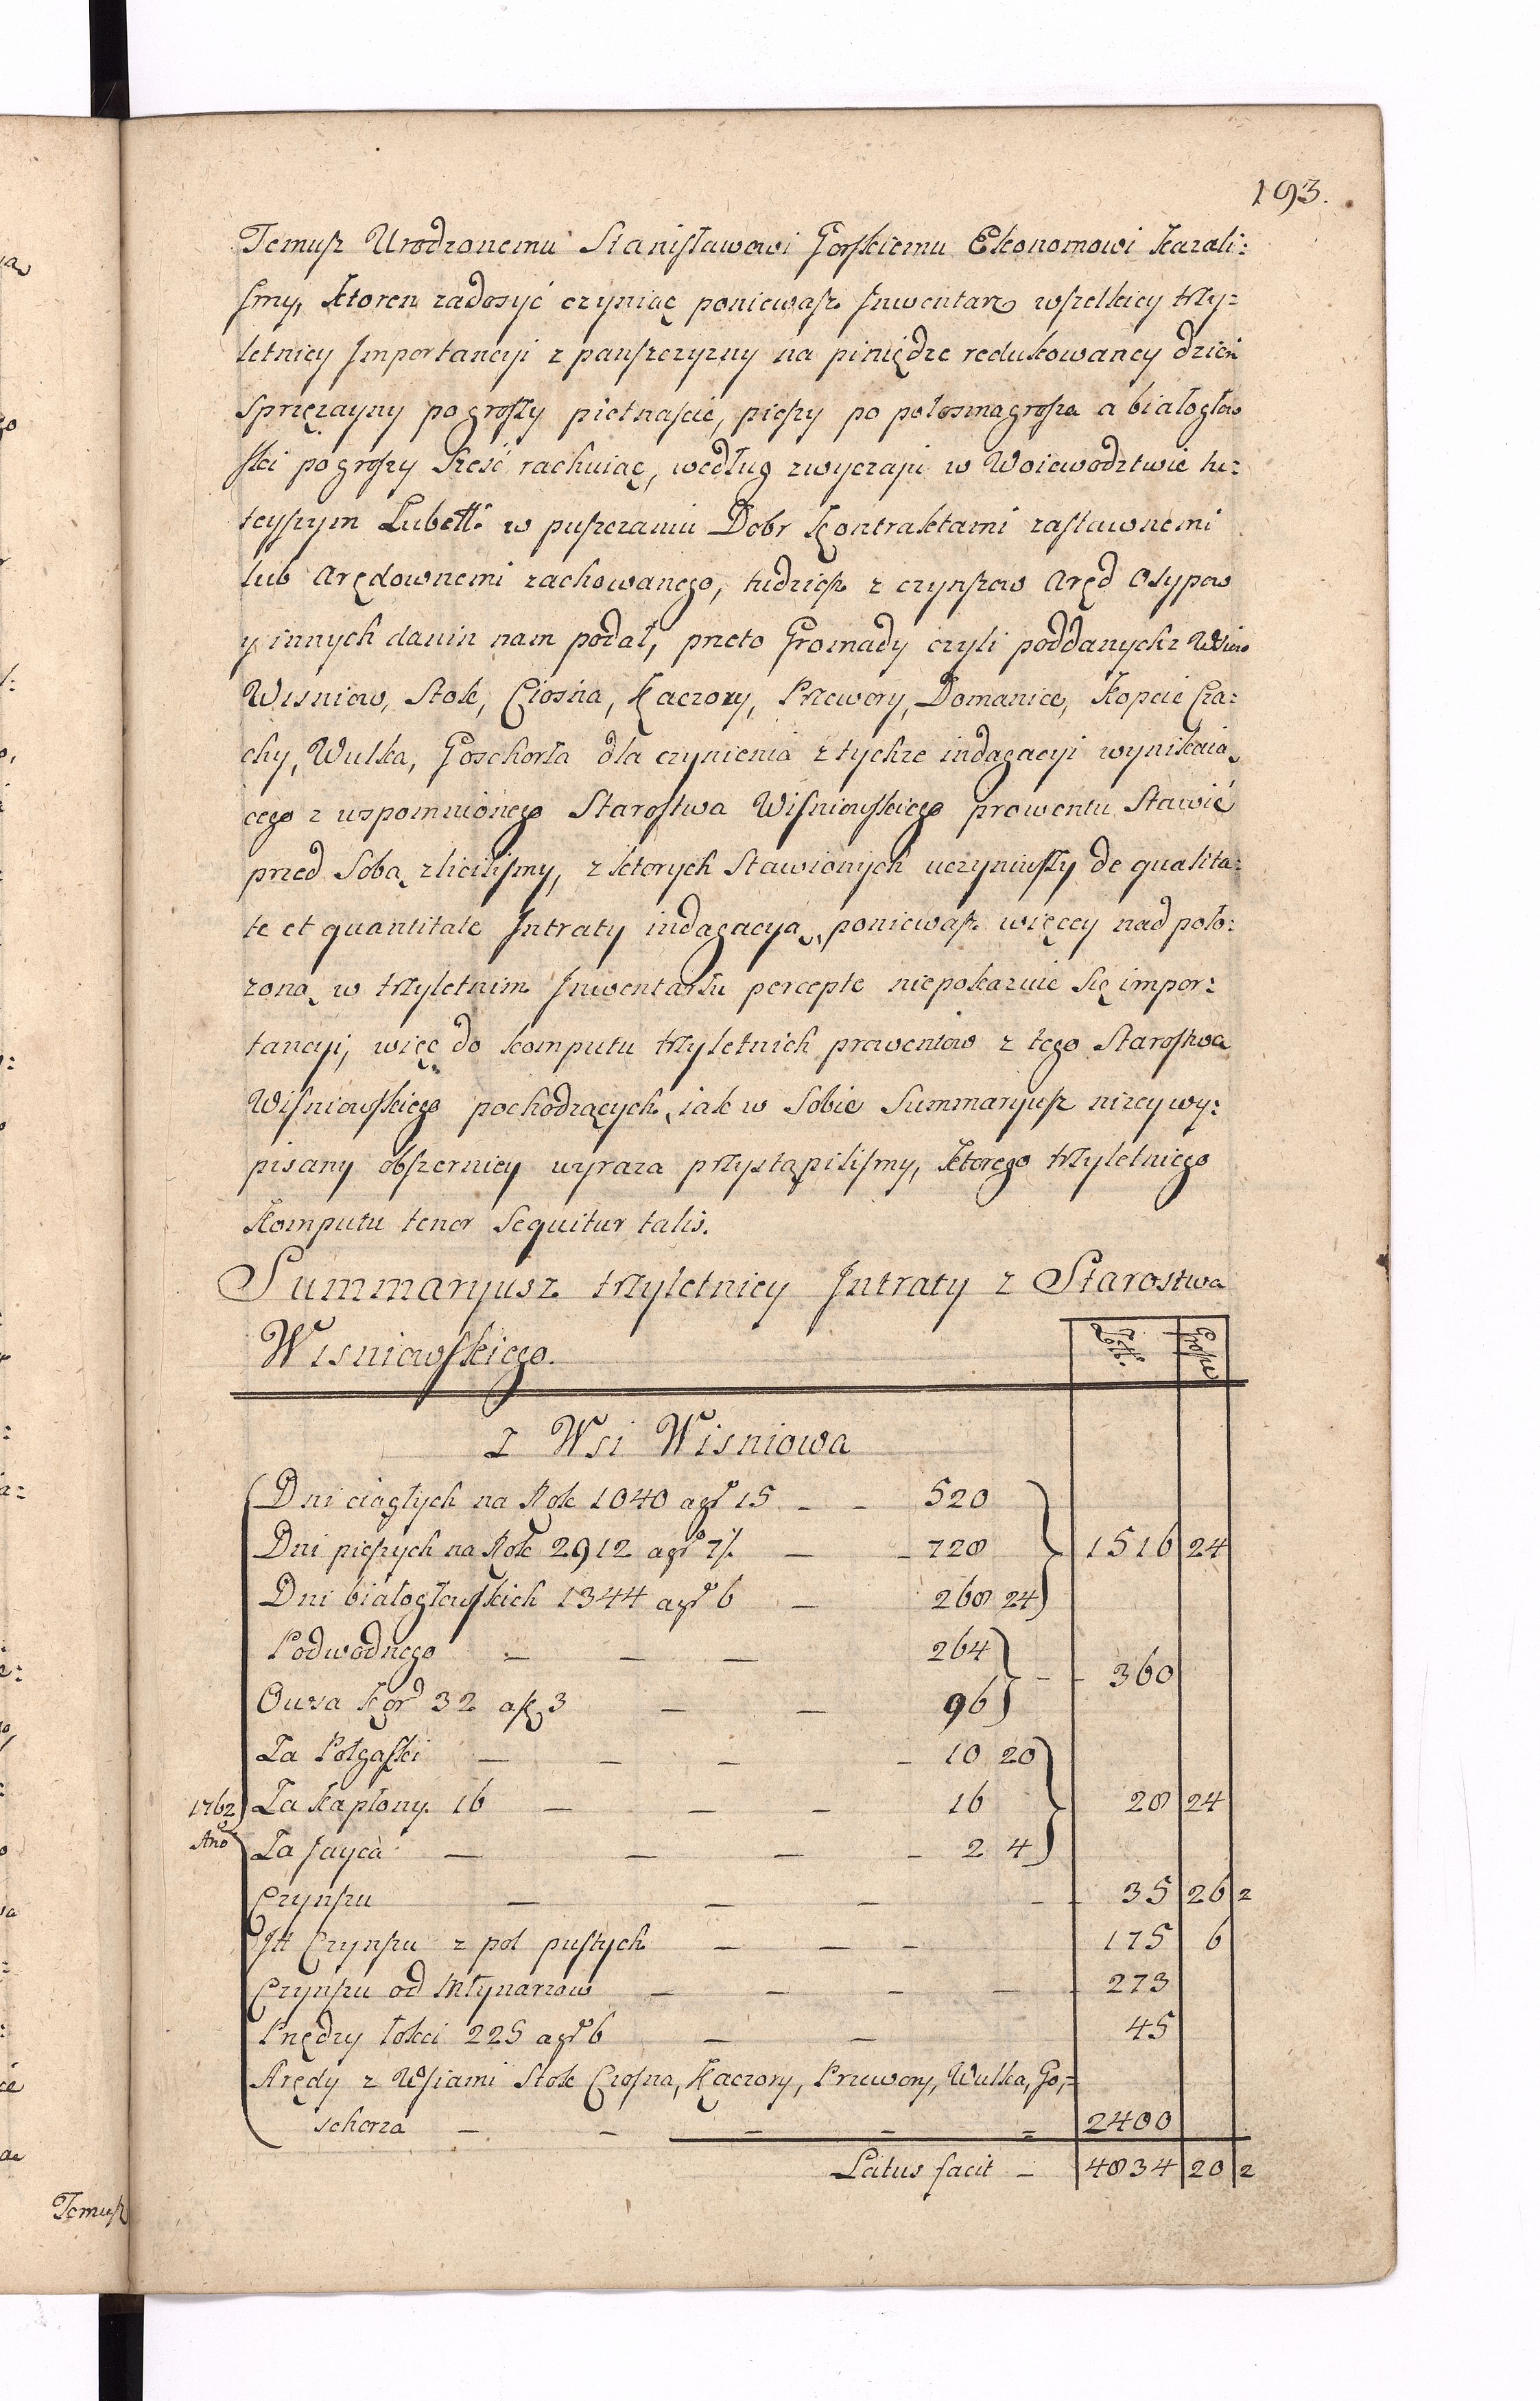 193.
Temusz Urodzonemu Stanisławowi Gorskiemu Ekonomowi kazali:
smy, ktoren zadosyć czyniąc ponieważ Jnwentarz wszelkiey trzy:
letniey Jmportancyi z panszczyzny na piniędze redukowaney dzień
sprzęzayny po groszy pietnascie, pieszy po połosmagrosza a białogłow
ski po groszy szesć rachuiąc, według zwyczaju w Woiewodztwie tu:
teyszym Lubel: w puszczaniu Dobr kontraktami zastawnemi
lub arędownemi zachowanego, tudziesz z czynszow aręd Osypow
y innych danin nam podał, przeto Gromady czyli poddanych z Wsiow
Wisniow, Stok, Ciosna, Kaczory, Przewory, Domanice, Kopcie Cza:
chy, Wulka, Goschorla dla czynienia z tychze indagacyi wynikaią
cego z wspomnionego Starostwa Wisniowskiego prowentu Stawić
przed Sobą zlicilismy, z ktorych Stawionych uczyniwszy de qualita:
te et quantitate Jntraty indagacyą, ponieważ więcey nad poło:
zoną w trzyletnim Jnwentarzu percepte niepokazuie się impor:
tancyi, więc do komputu trzyletnich prowentow z tego Starostwa
Wisniowskiego pochodzących, iak w Sobie Summaryusz nizey wy:
pisany obszerniey wyraza przystąpilismy, ktorego trzyletniego
Komputu tenor Sequitur talis.
Summaryusz trzyletniey Jntraty z Starostwa
Wisniowskiego. Złote: Grosze
Z Wsi Wisniowa
Dni ciągłych na Rok 1040 a gr 15 — — 520
Dni pieszych na Rok 2912 a gr 7½ — — 728 1516 24
Dni białogłowskich 1344 a gr 6 — 268 24
Podwodnego — — — 264
Owsa kor 32 a f 3 — — 96 - - 360
Za Połgąski — — — — 10 20
1762 Za Kapłony 16 — — — 16 28 24
Ano Za Jayca — — — — 2 4
Czynszu — — — — 35 26 2
Jtt Czynszu z pol pustych — — — 175 6
Czynszu od Młynarzow — — — — 273
Przędzy łokci 225 a gr 6 — — 45
Arędy z Wsiami Stok Czosna, Kaczory, Przewory, Wulka, Go,=
schorza — — — — = 2400
Latus facit — 4834 20 2
Temusz